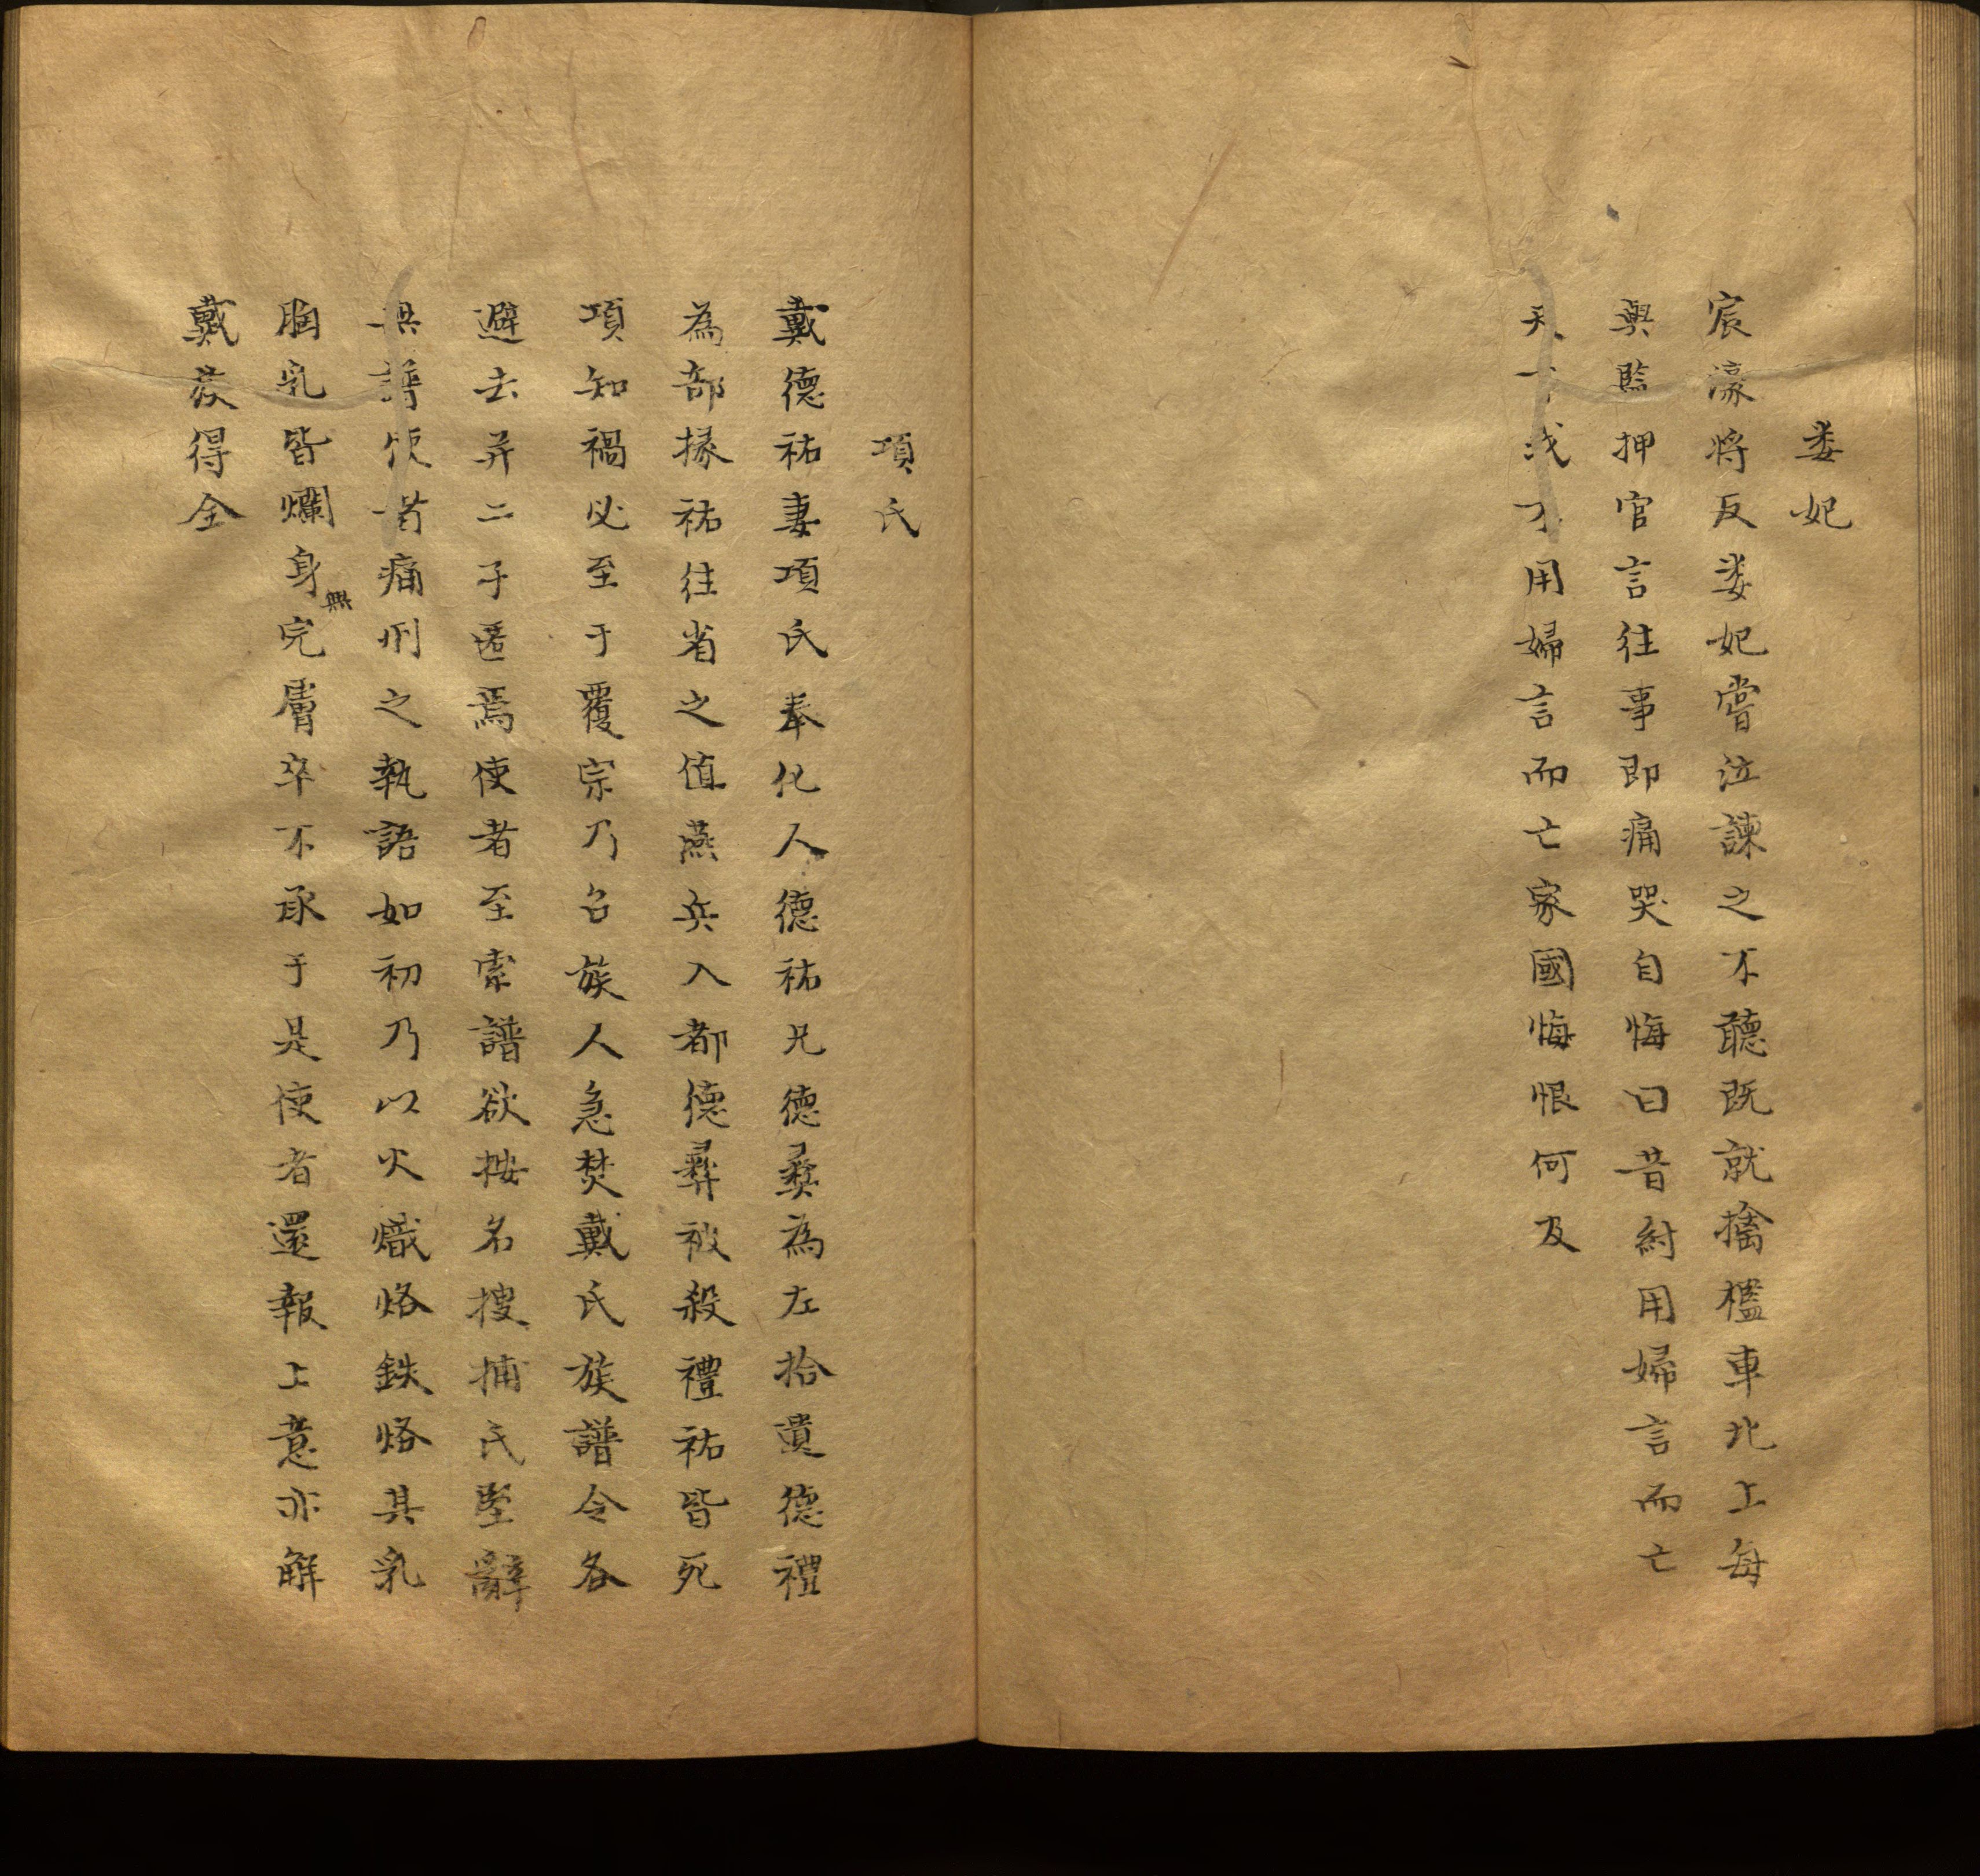 婁妃
宸濠將反婁妃嘗泣諫之不聽既就擒檻車北上每
與監押官言往事即痛哭自悔曰昔紂用婦言而亡
天下我不用婦言而亡家國悔恨何及
項氏
戴德祐妻項氏奉化人德祐兄德彝為左拾遺德禮
為部掾祐往省之值燕兵入都德彝被殺禮祐皆死
項知禍必至于覆宗乃召族人急焚戴氏族譜令各
避去并二子匿焉使者至索譜欲按名搜捕氏堅辭
無譜使者痛刑之執語如初乃以火熾烙鉄烙其乳
胸乳皆爛身無完膚卒不承于是使者還報上意亦解
戴族得全